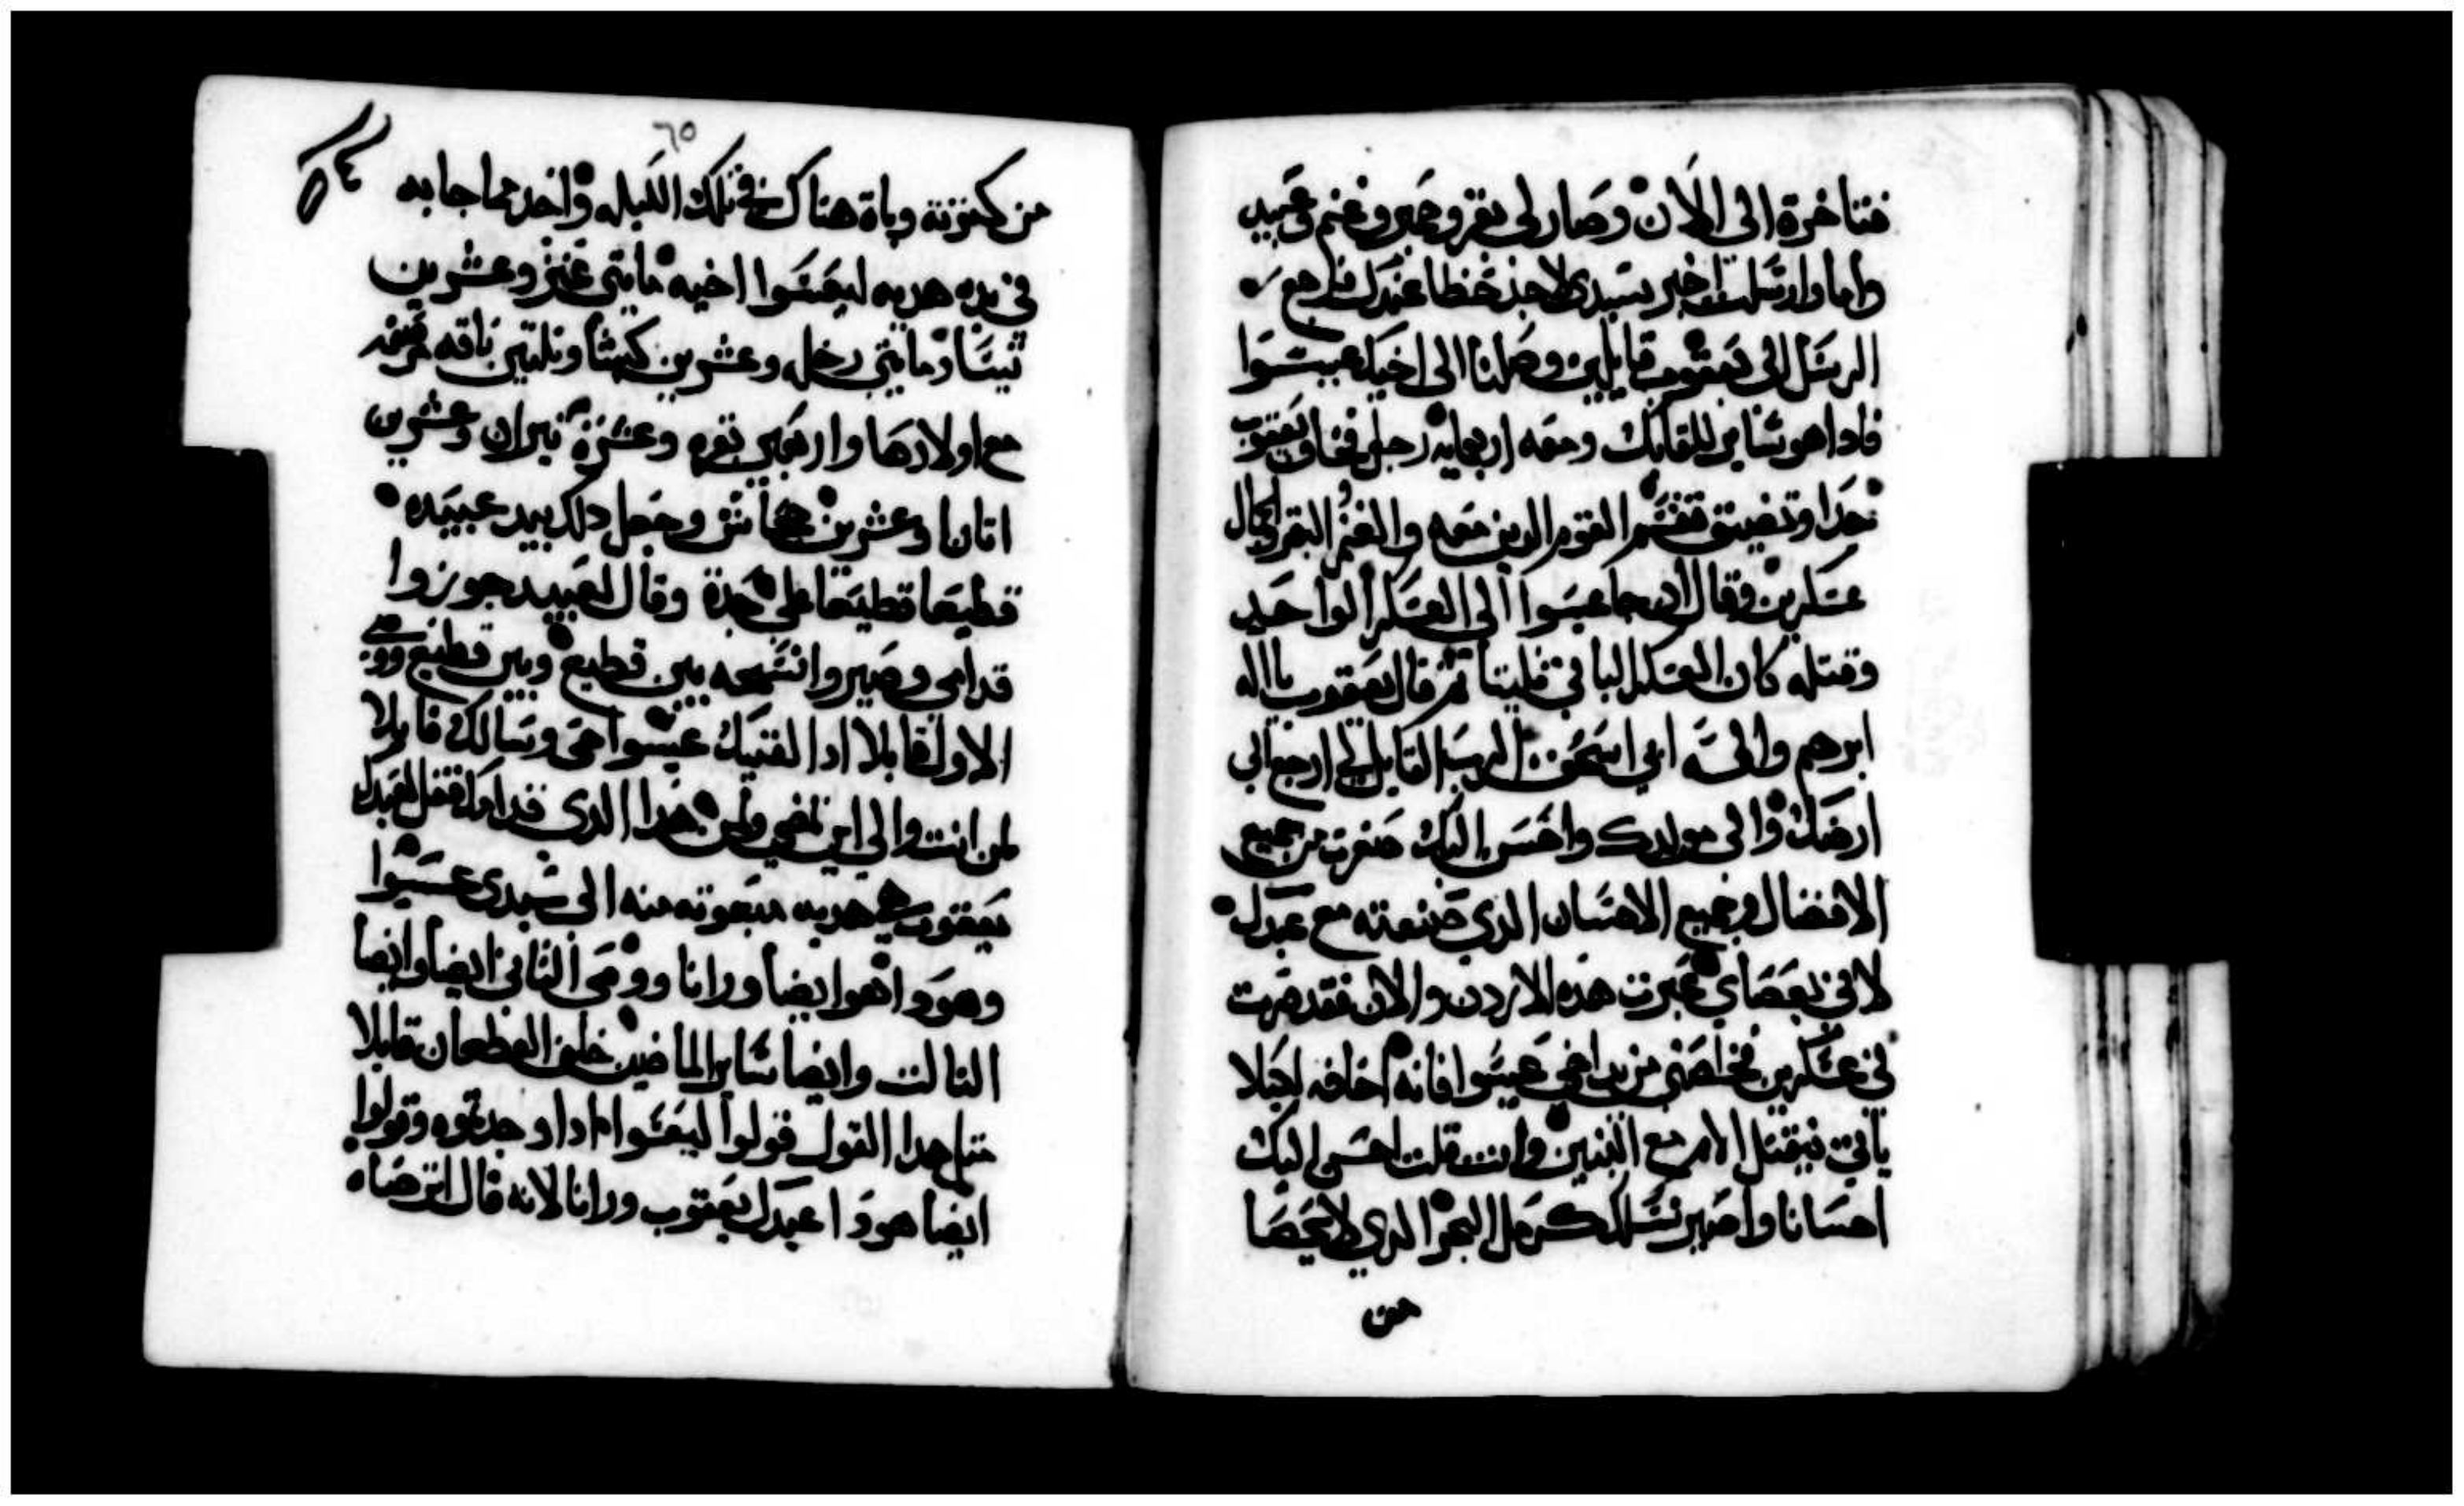 فتاخرة الى الان وصار لي بقر وحمير وغنم وعبيد
واما وارسلت اخبر سيدي لاجد حظا عندك فرجع
الرسل الى يعقوب قايلين وصلنا الى اخيك عيسوا
فادا هو ساير للقايك ومعه اربعمايه رجل فخاف يعقوب
جدا وتضيق فقسم القوم الدين معه والغنم البقر والجمال
عسكرين وقال ان جا عيسوا الى العسكر الواحد
وقتله كان العسكر البا في فليتا تم قال يعقوب يا اله
ابرهيم والـه ابي اسحق الرب القايل لي ارجع الى
ارضك والى مولدك واحسن اليك صغرت من جميع
الافضال وجميع الاحسان الدي صنعته مع عبدك
لاني بعصاي عبرت هده الاردن والان فقد صرت
في عسكرين فخلصني من يد اخي عيسوا فانه اخافه ليلا
ياتي فيقتل الام مع البنين وانت قلت احسن اليك
احسانا واصير نسلك كرمل البحر الدي لا يحصا
من
٦٥
من كترته وباة هناك في تلك الليله واخد مما جا به
في يده هديه ليعسوا اخيه مايتي عنز وعشرين
تيسا ومايتي رخل وعشرين كبشا وتلتين ناقه مرضعه
مع اولادها واربعين بقره وعشرة تيران وعشرين
اتانا وعشرين جحاش وجعل دلك بيد عبيده
قطيعا قطيعا على حدة وقال لعبيده جوزوا
قدامي وصيروا انفسحه بين قطيع وبين قطيع ووصى
الاول قايلا ادا لقتيك عيسوا اخى وسالك قايلا
لمن انت والي اين تمضي ولمن هدا الدي قدامك فقل لعبدك
يعقوب هي هديه مبعوته منه الى سيدي عيسوا
وهودا هوا ايضا ورانا ووصى التاني ايضا وايضا
التالت وايضا ساير الماضيين خلف القطعان قايلا
متل هدا القول قولوا ليعسوا ادا وجدتموه وقولوا
ايضا هودا عبدك يعقوب ورانا لانه قال اترضاه